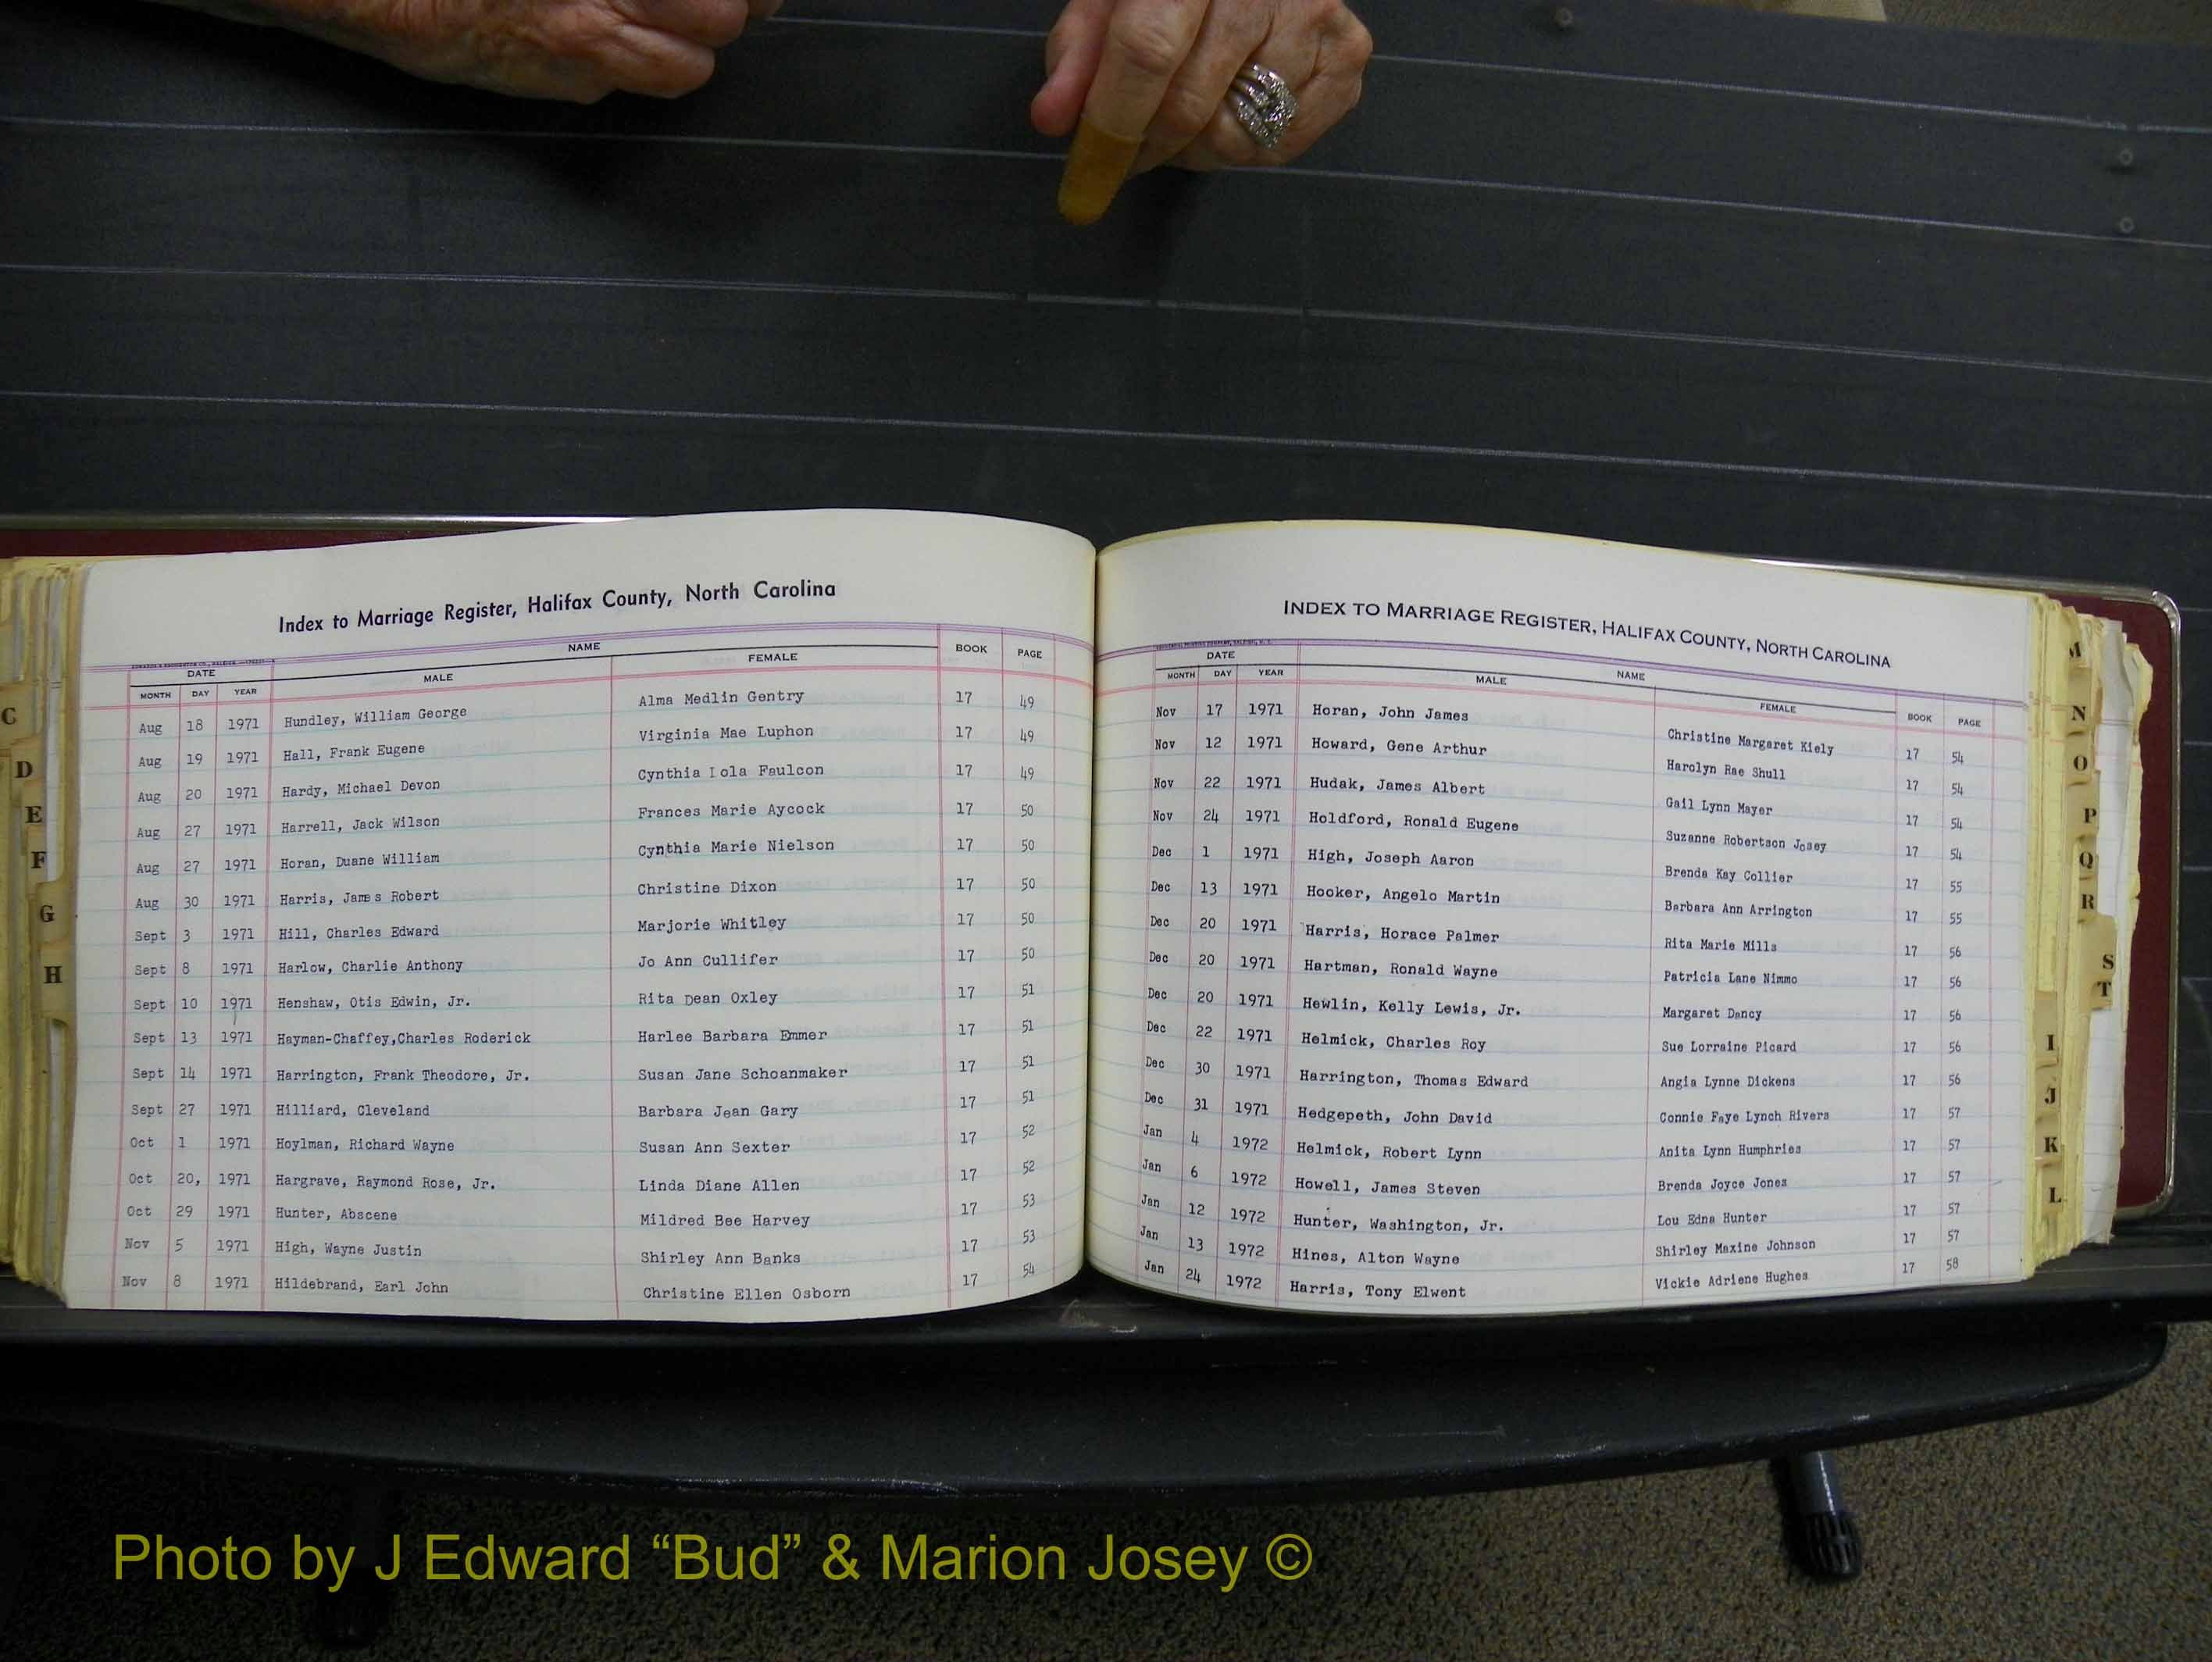 Index to Marriage Register, Halifax County, North Carolina
DATE NAME BOOK PAGE
MONTH DAY YEAR MALE FEMALE
Aug 18 1971 Hundley, William George Alma Medlin Gentry 17 49
Aug 19 1971 Hall, Frank Eugene Virginia Mae Luphon 17 49
Aug 20 1971 Hardy, Michael Devon Cynthia Lola Faulcon 17 49
Aug 27 1971 Harrell, Jack Wilson Frances Marie Aycock 17 50
Aug 27 1971 Horan, Duane William Cynthia Marie Nielson 17 50
Aug 30 1971 Harris, James Robert Christine Dixon 17 50
Sept 3 1971 Hill, Charles Edward Marjorie Whitley 17 50
Sept 8 1971 Harlow, Charlie Anthony Jo Ann Cullifer 17 50
Sept 10 1971 Henshaw, Otis Edwin, Jr. Rita Dean Oxley 17 51
Sept 13 1971 Hayman-Chaffey,Charles Roderick Harlee Barbara Emmer 17 51
Sept 14 1971 Harrington, Frank Theodore, Jr. Susan Jane Schoanmaker 17 51
Sept 27 1971 Hilliard, Cleveland Barbara Jean Gary 17 51
Oct 1 1971 Hoylman, Richard Wayne Susan Ann Sexter 17 52
Oct 20, 1971 Hargrave, Raymond Rose, Jr. Linda Diane Allen 17 52
Oct 29 1971 Hunter, Abscene Mildred Bee Harvey 17 53
Nov 5 1971 High, Wayne Justin Shirley Ann Banks 17 53
Nov 8 1971 Hildebrand, Earl John Christine Ellen Osborn 17 54
C
D
E
F
G
H
INDEX TO MARRIAGE REGISTER, HALIFAX COUNTY, NORTH CAROLINA
DATE NAME
MONTH DAY YEAR MALE FEMALE BOOK PAGE
Nov 17 1971 Horan, John James Christine Margaret Kiely 17 54
Nov 12 1971 Howard, Gene Arthur Harolyn Rae Shull 17 54
Nov 22 1971 Hudak, James Albert Gail Lynn Mayer 17 54
Nov 24 1971 Holdford, Ronald Eugene Suzanne Robertson Josey 17 54
Dec 1 1971 High, Joseph Aaron Brenda Kay Collier 17 55
Dec 13 1971 Hooker, Angelo Martin Barbara Ann Arrington 17 55
Dec 20 1971 Harris, Horace Palmer Rita Marie Mills 17 56
Dec 20 1971 Hartman, Ronald Wayne Patricia Lane Nimmo 17 56
Dec 20 1971 Hewlin, Kelly Lewis, Jr. Margaret Dancy 17 56
Dec 22 1971 Helmick, Charles Roy Sue Lorraine Picard 17 56
Dec 30 1971 Harrington, Thomas Edward Angia Lynne Dickens 17 56
Dec 31 1971 Hedgepeth, John David Connie Faye Lynch Rivers 17 57
Jan 4 1972 Helmick, Robert Lynn Anita Lynn Humphries 17 57
Jan 6 1972 Howell, James Steven Brenda Joyce Jones 17 57
Jan 12 1972 Hunter, Washington, Jr. Lou Edna Hunter 17 57
Jan 13 1972 Hines, Alton Wayne Shirley Maxine Johnson 17 57
Jan 24 1972 Harris, Tony Elwent Vickie Adriene Hughes 17 58
M
N
O
P
Q
R
S
T
I
J
K
L
Photo by J Edward “Bud” & Marion Josey ©